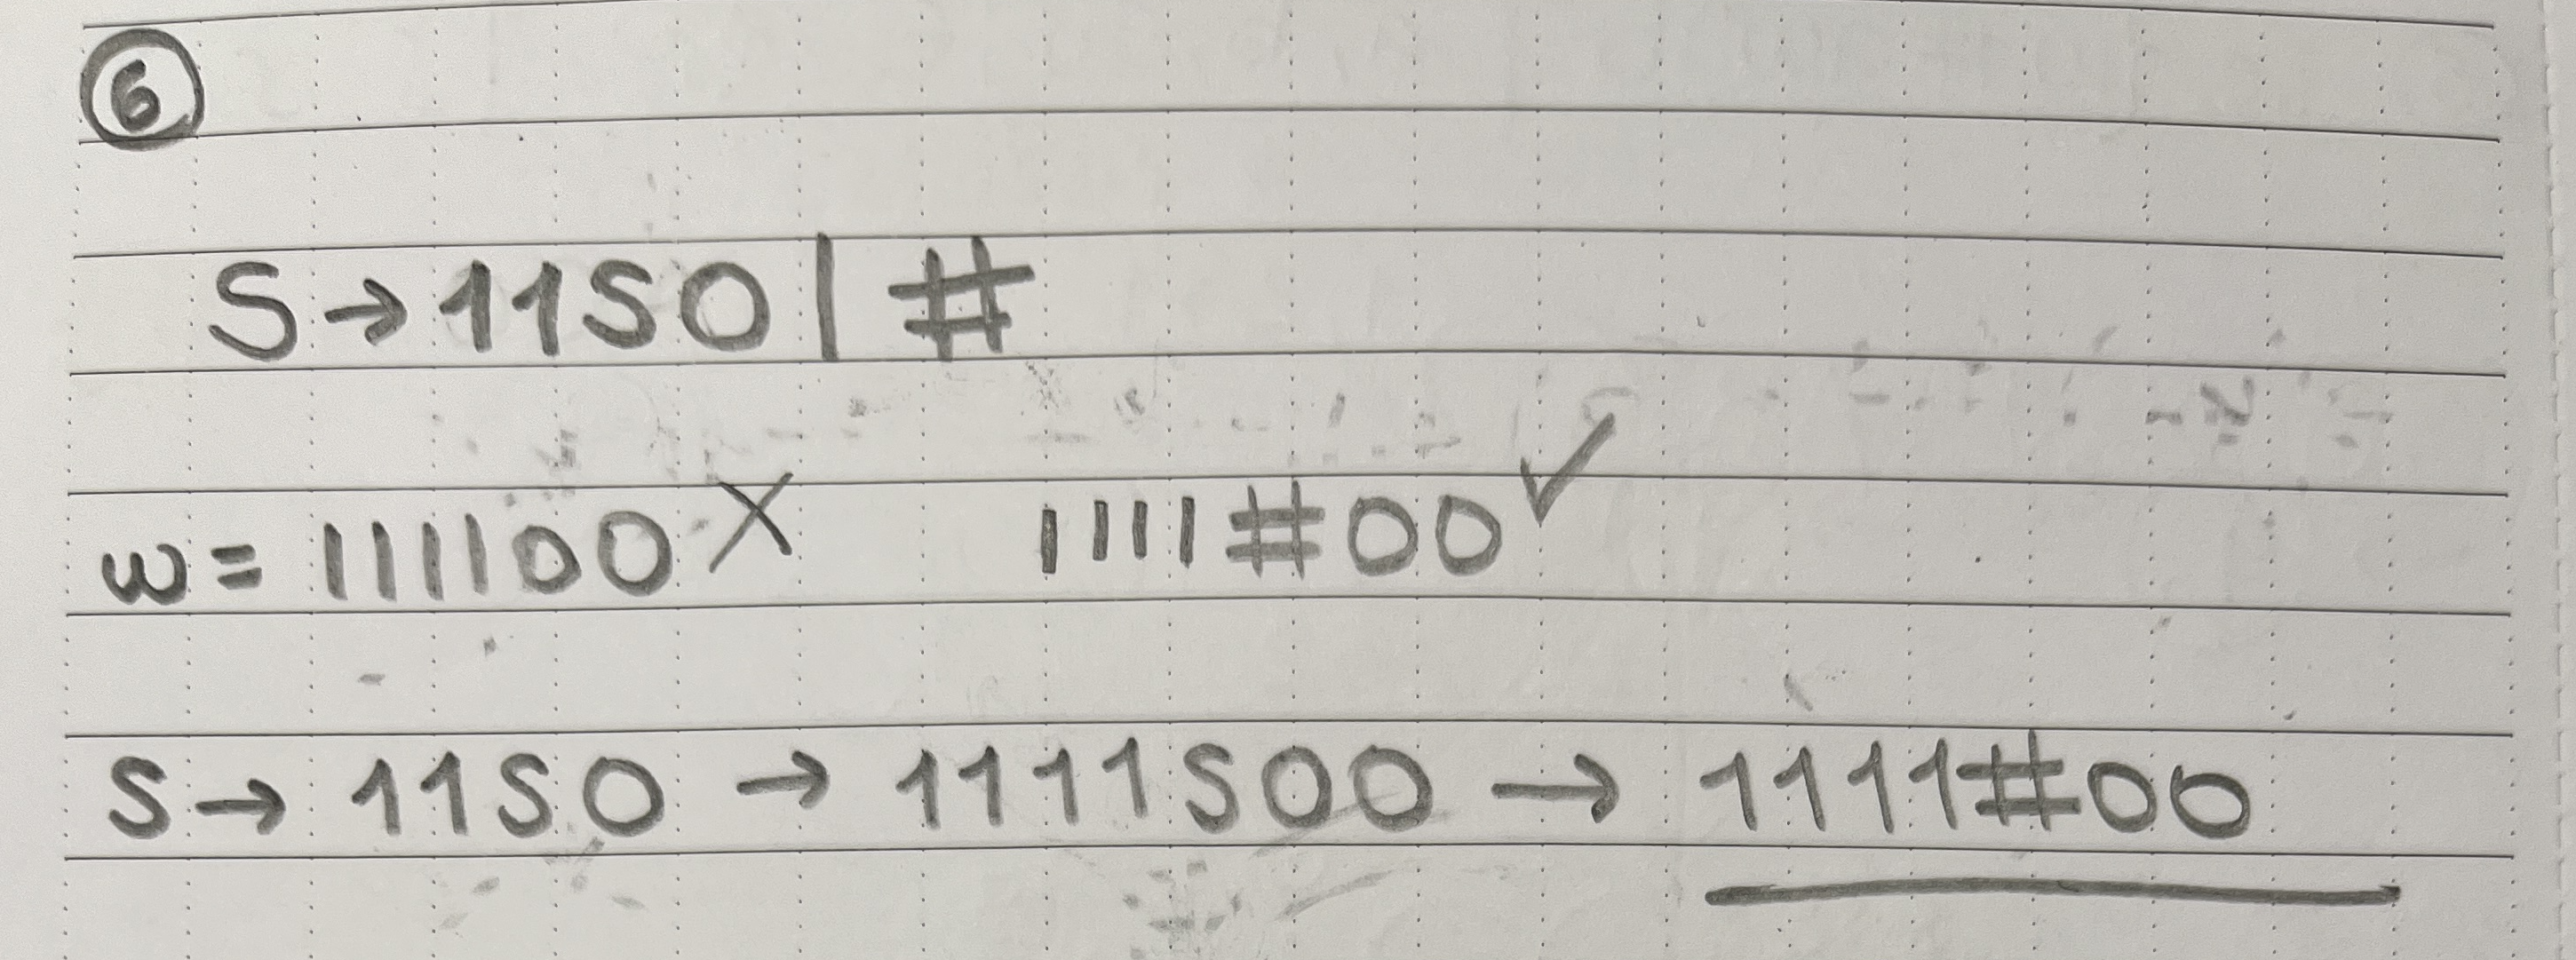 6
S → 11S0 | #
w = 111100 X 1111#00 ✓
S → 11S0 → 1111S00 → 1111#00